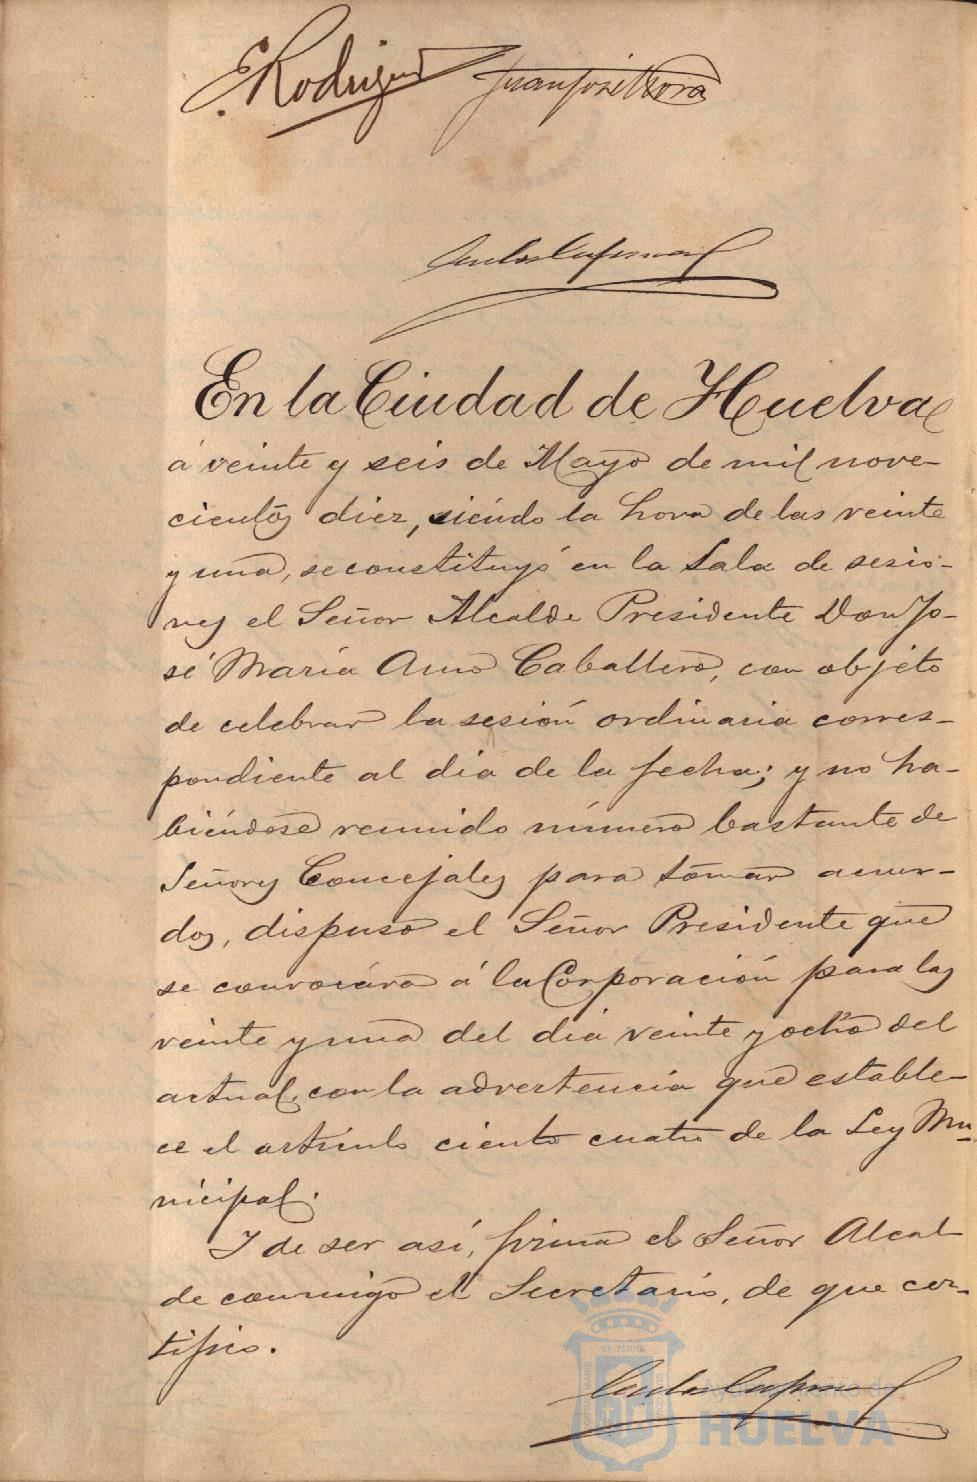 E. Rodriguez Juan José Mora
En la Ciudad de Huelva
á veinte y seis de Mayo de mil nove-
cientos diez, siéndo la hora de las veinte
y una, se constituyó en la Sala de sesio-
nes el Señor Alcalde Presidente Don Jo-
sé María Amo Caballero, con objeto
de celebrar la sesión ordinaria corres-
pondiente al dia de la fecha; y no ha-
biéndose reunido número bastante de
Señores Concejales para tomar acuer-
dos, dispuso el Señor Presidente que
se convocára á la Corporación para las
veinte y una del dia veinte y ocho del
actual, con la advertencia que estable-
ce el artículo ciento cuatro de la Ley Mu-
nicipal.
Y de ser así, firma el Señor Alcal-
de conmigo el Secretario, de que cer-
tifico.
Ayuntamiento de
HUELVA